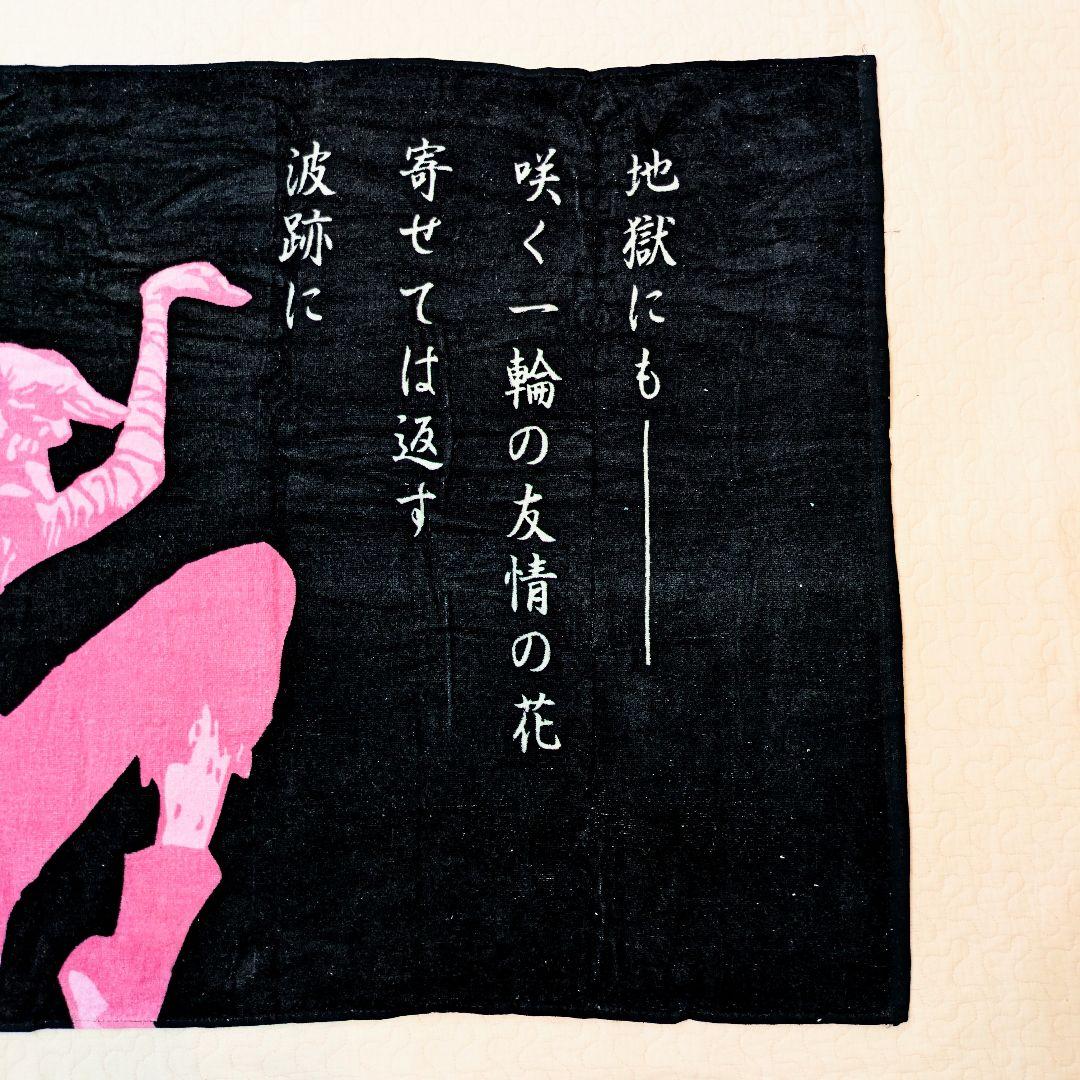 地獄にも――
咲く一輪の友情の花
寄せては返す
波跡に